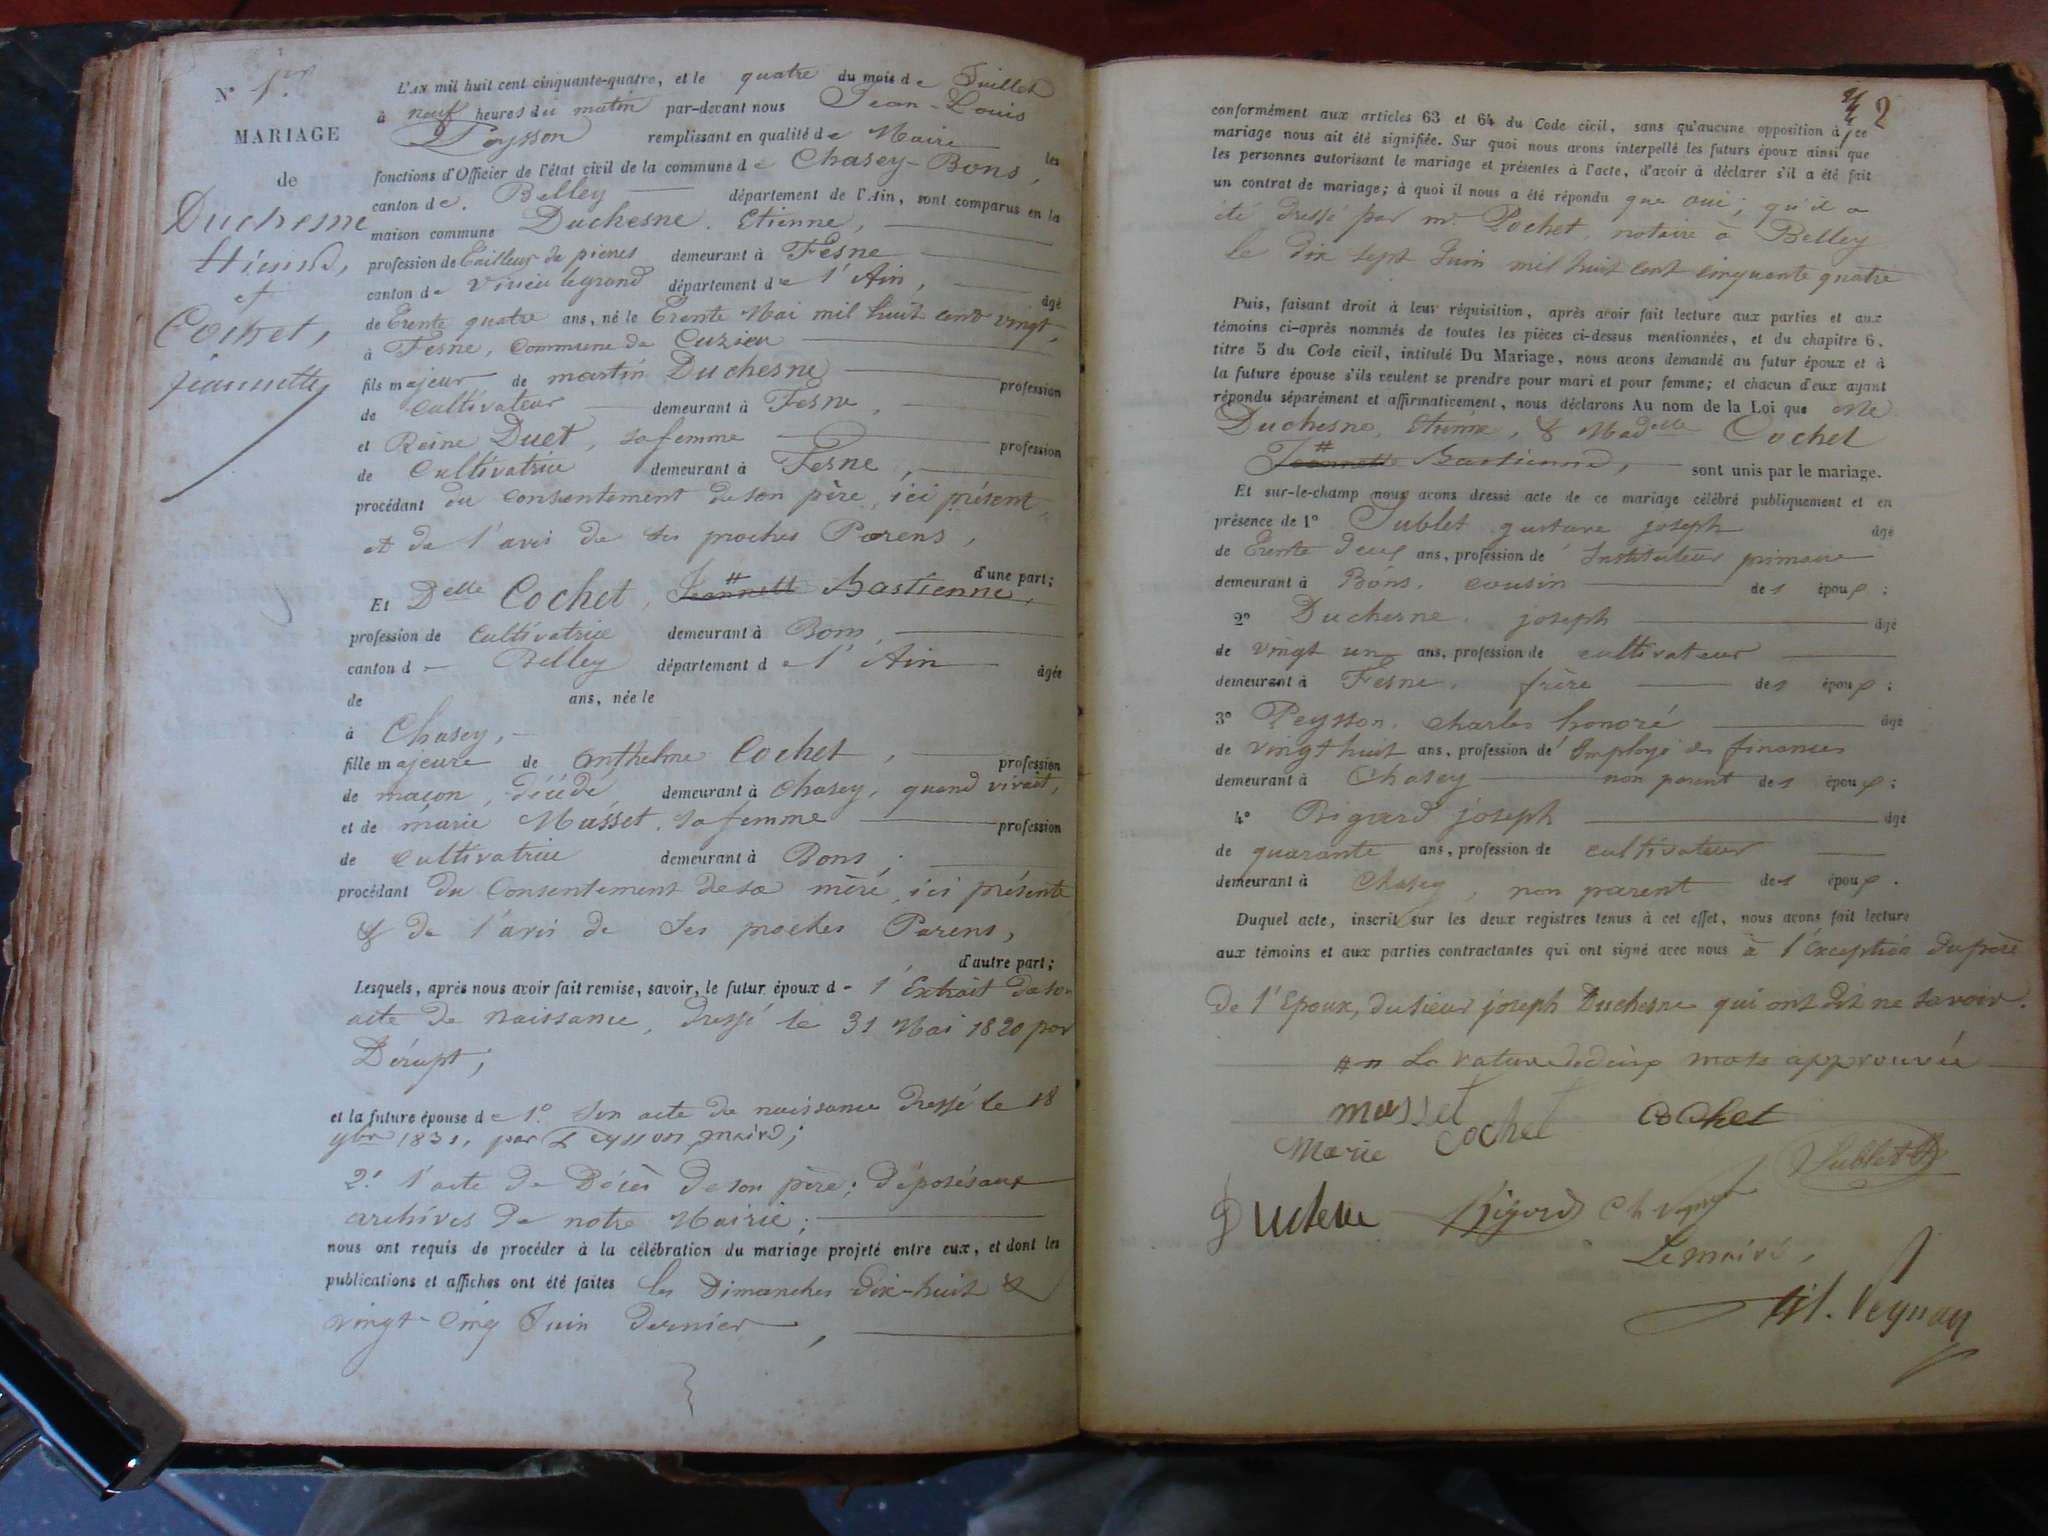 N° 1er
MARIAGE
de
Duchesne
Etienne,
et
Cochet,
jeannette,
L'AN mil huit cent cinquante-quatre, et le quatre du mois de Juillet
à neuf heures du matin par-devant nous Jean-Louis
Peysson remplissant en qualité de Maire les
fonctions d'Officier de l'état civil de la commune de Chasey-Bons,
canton de Belley département de l'Ain, sont comparus en la
maison commune Duchesne, Etienne,
profession de Tailleur de pierres demeurant à Fesne
canton de Virieu legrand département de l'Ain, âgé
de Trente quatre ans, né le Trente Mai mil huit cent vingt,
à Fesne, Commune de Cuzieu
fils majeur de martin Duchesne profession
de Cultivateur demeurant à Fesne,
et Reine Duet, sa femme profession
de Cultivatrice demeurant à Fesne,
procédant du consentement de son père, ici présent,
et de l'avis de ses proches Parens,
d'une part;
Et Delle Cochet, Jeannette Bastienne,
profession de Cultivatrice demeurant à Bons,
canton de Belley département de l'Ain âgée
de ans, née le
à Chasey,
fille majeure de Anthelme Cochet, profession
de maçon, décédé demeurant à Chasey, quand vivait,
et de marie Masset, sa femme profession
de Cultivatrice demeurant à Bons;
procédant du Consentement de sa mère, ici présente
& de l'avis de ses proches Parens,
d'autre part;
Lesquels, après nous avoir fait remise, savoir, le futur époux de l'Extrait de son
acte de naissance, dressé le 31 Mai 1820 par
Dérupt;
et la future épouse de 1° Son acte de naissance dressé le 18
9bre 1831, par Peysson, maire;
2° l'acte de Décès de son père; déposés aux
archives de notre Mairie;
nous ont requis de procéder à la célébration du mariage projeté entre eux, et dont les
publications et affiches ont été faites les Dimanches dix-huit &
vingt-cinq Juin dernier,
2
conformément aux articles 63 et 64 du Code civil, sans qu'aucune opposition à ce
mariage nous ait été signifiée. Sur quoi nous avons interpellé les futurs époux ainsi que
les personnes autorisant le mariage et présentes à l'acte, d'avoir à déclarer s'il a été fait
un contrat de mariage; à quoi il nous a été répondu que oui; qu'il a
été dressé par me Pochet, notaire à Belley
le dix sept Juin mil huit cent cinquante quatre
Puis, faisant droit à leur réquisition, après avoir fait lecture aux parties et aux
témoins ci-après nommés de toutes les pièces ci-dessus mentionnées, et du chapitre 6,
titre 5 du Code civil, intitulé Du Mariage, nous avons demandé au futur époux et à
la future épouse s'ils veulent se prendre pour mari et pour femme; et chacun d'eux ayant
répondu séparément et affirmativement, nous déclarons Au nom de la Loi que
Duchesne, Etienne, & Madelle Cochet
Jeannette Bastienne, sont unis par le mariage.
Et sur-le-champ nous avons dressé acte de ce mariage célébré publiquement et en
présence de 1° Sublet gustave joseph âgé
de Trente deux ans, profession de Instituteur primaire
demeurant à Bons, cousin des époux;
2° Duchesne, joseph âgé
de vingt un ans, profession de cultivateur
demeurant à Fesne, frère des époux;
3° Peysson, charles honoré âgé
de vingt huit ans, profession de Employé des finances
demeurant à Chasey non parent des époux;
4° Rigard joseph âgé
de quarante ans, profession de cultivateur
demeurant à Chasey, non parent des époux.
Duquel acte, inscrit sur les deux registres tenus à cet effet, nous avons fait lecture
aux témoins et aux parties contractantes qui ont signé avec nous à l'exception du père
de l'Epoux, du sieur joseph Duchesne qui ont dit ne savoir.
La rature de deux mots approuvée
masset cochet cochet
Marie Sublet
Duchene Rigard
Le maire,